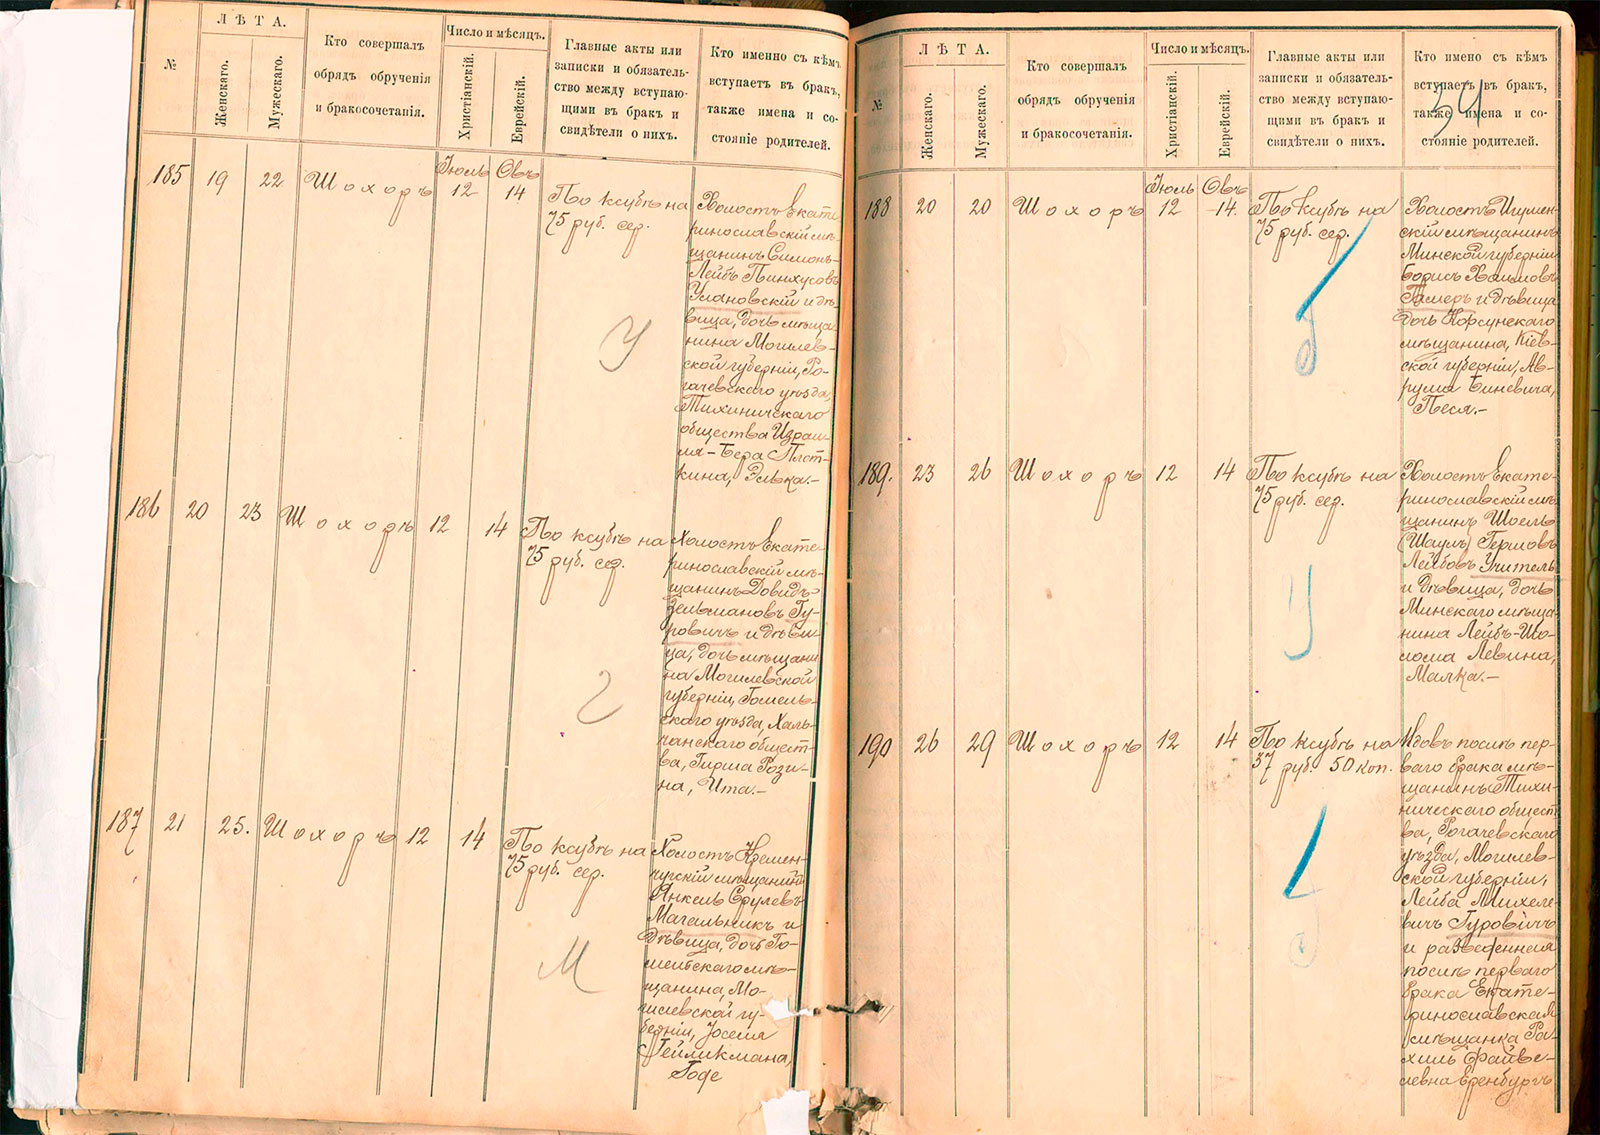 №
ЛѢТА.
Женскаго.
Мужескаго.
Кто совершалъ
обрядъ обрученія
и бракосочетанія.
Число и мѣсяцъ.
Христіанскій.
Еврейскій.
Главные акты или
записки и обязатель-
ство между вступаю-
щими въ бракъ и
свидѣтели о нихъ.
Кто именно съ кѣмъ
вступаетъ въ бракъ,
также имена и со-
стояніе родителей.
185 19 22 Шохоръ Іюль 12 Овъ 14
По ксубѣ на
75 руб. сер.
Холостъ Екате
ринославскій мѣ-
щанинъ Симонъ-
Лейбъ Пинхусовъ
Улановскій и дѣ-
вица, дочь мѣща
нина Могилев-
ской губерніи, Ро-
гачевскаго уѣзда,
Тихиничскаго
общества Израи-
ля-Бера Плот-
кина, Элька.-
У
186 20 23 Шохоръ 12 14
По ксубѣ на
75 руб. сер.
Холостъ Екате
ринославскій мѣ-
щанинъ Довидъ-
Зельмановъ Гу-
ровичъ и дѣви-
ца, дочь мѣщани
на Могилевской
губерніи, Гомель-
скаго уѣзда, Халь-
чанскаго общест-
ва, Гирша Рози-
на, Ита.-
Г
187 21 25. Шохоръ 12 14
По ксубѣ на
75 руб. сер.
Холостъ Кремен-
чугскій мѣщанинъ
Янкель Срулевъ
Магальникъ и
дѣвица, дочь Го-
мельскаго мѣ-
щанина, Мо-
гилевской гу-
берніи, Іоселя
Гейликмана,
Годе
М
№
ЛѢТА.
Женскаго.
Мужескаго.
Кто совершалъ
обрядъ обрученія
и бракосочетанія.
Число и мѣсяцъ.
Христіанскій.
Еврейскій.
Главные акты или
записки и обязатель-
ство между вступаю-
щими въ бракъ и
свидѣтели о нихъ.
Кто имено съ кѣмъ
вступаетъ въ бракъ,
также имена и со-
стояніе родителей.
54
188 20 20 Шохоръ Іюль 12 Овъ 14.
По ксубѣ на
75 руб. сер.
Холостъ Игумен-
скій мѣщанинъ
Минской губерніи
Борисъ Хаимовъ
Гамеръ и дѣвица
дочь Корсунскаго
мѣщанина, Кіев-
ской губерніи, Ав-
рума Биневича,
Песя.-
189. 23 26 Шохоръ 12 14
По ксубѣ на
75 руб. сер.
Холостъ Екате-
ринославскій мѣ-
щанинъ Шоель
(Шаулъ) Гершовъ
Лейбовъ Учитель
и дѣвица, дочь
Минскаго мѣща-
нина Лейбъ-Шо-
лома Левина,
Малка.-
У
190 26 29 Шохоръ 12 14
По ксубѣ на
37 руб. 50 коп.
Вдовъ послѣ пер-
ваго брака мѣ-
щанинъ Тихи-
ническаго общест
ва, Рогачевскаго
уѣзда, Могилев-
ской губерніи,
Лейба Михеле-
вичъ Гуровичъ
и разведенная
послѣ перваго
брака Екате-
ринославская
мѣщанка Ра-
хиль Файве-
левна Еренбургъ